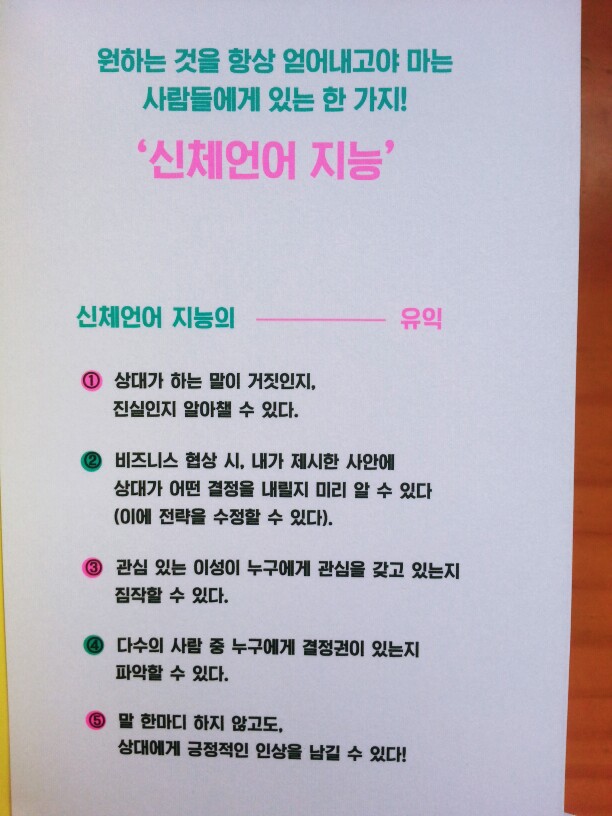 원하는 것을 항상 얻어내고야 마는
사람들에게 있는 한 가지!
‘신체언어 지능’
신체언어 지능의 유익
① 상대가 하는 말이 거짓인지,
진실인지 알아챌 수 있다.
② 비즈니스 협상 시, 내가 제시한 사안에
상대가 어떤 결정을 내릴지 미리 알 수 있다
(이에 전략을 수정할 수 있다).
③ 관심 있는 이성이 누구에게 관심을 갖고 있는지
짐작할 수 있다.
④ 다수의 사람 중 누구에게 결정권이 있는지
파악할 수 있다.
⑤ 말 한마디 하지 않고도,
상대에게 긍정적인 인상을 남길 수 있다!